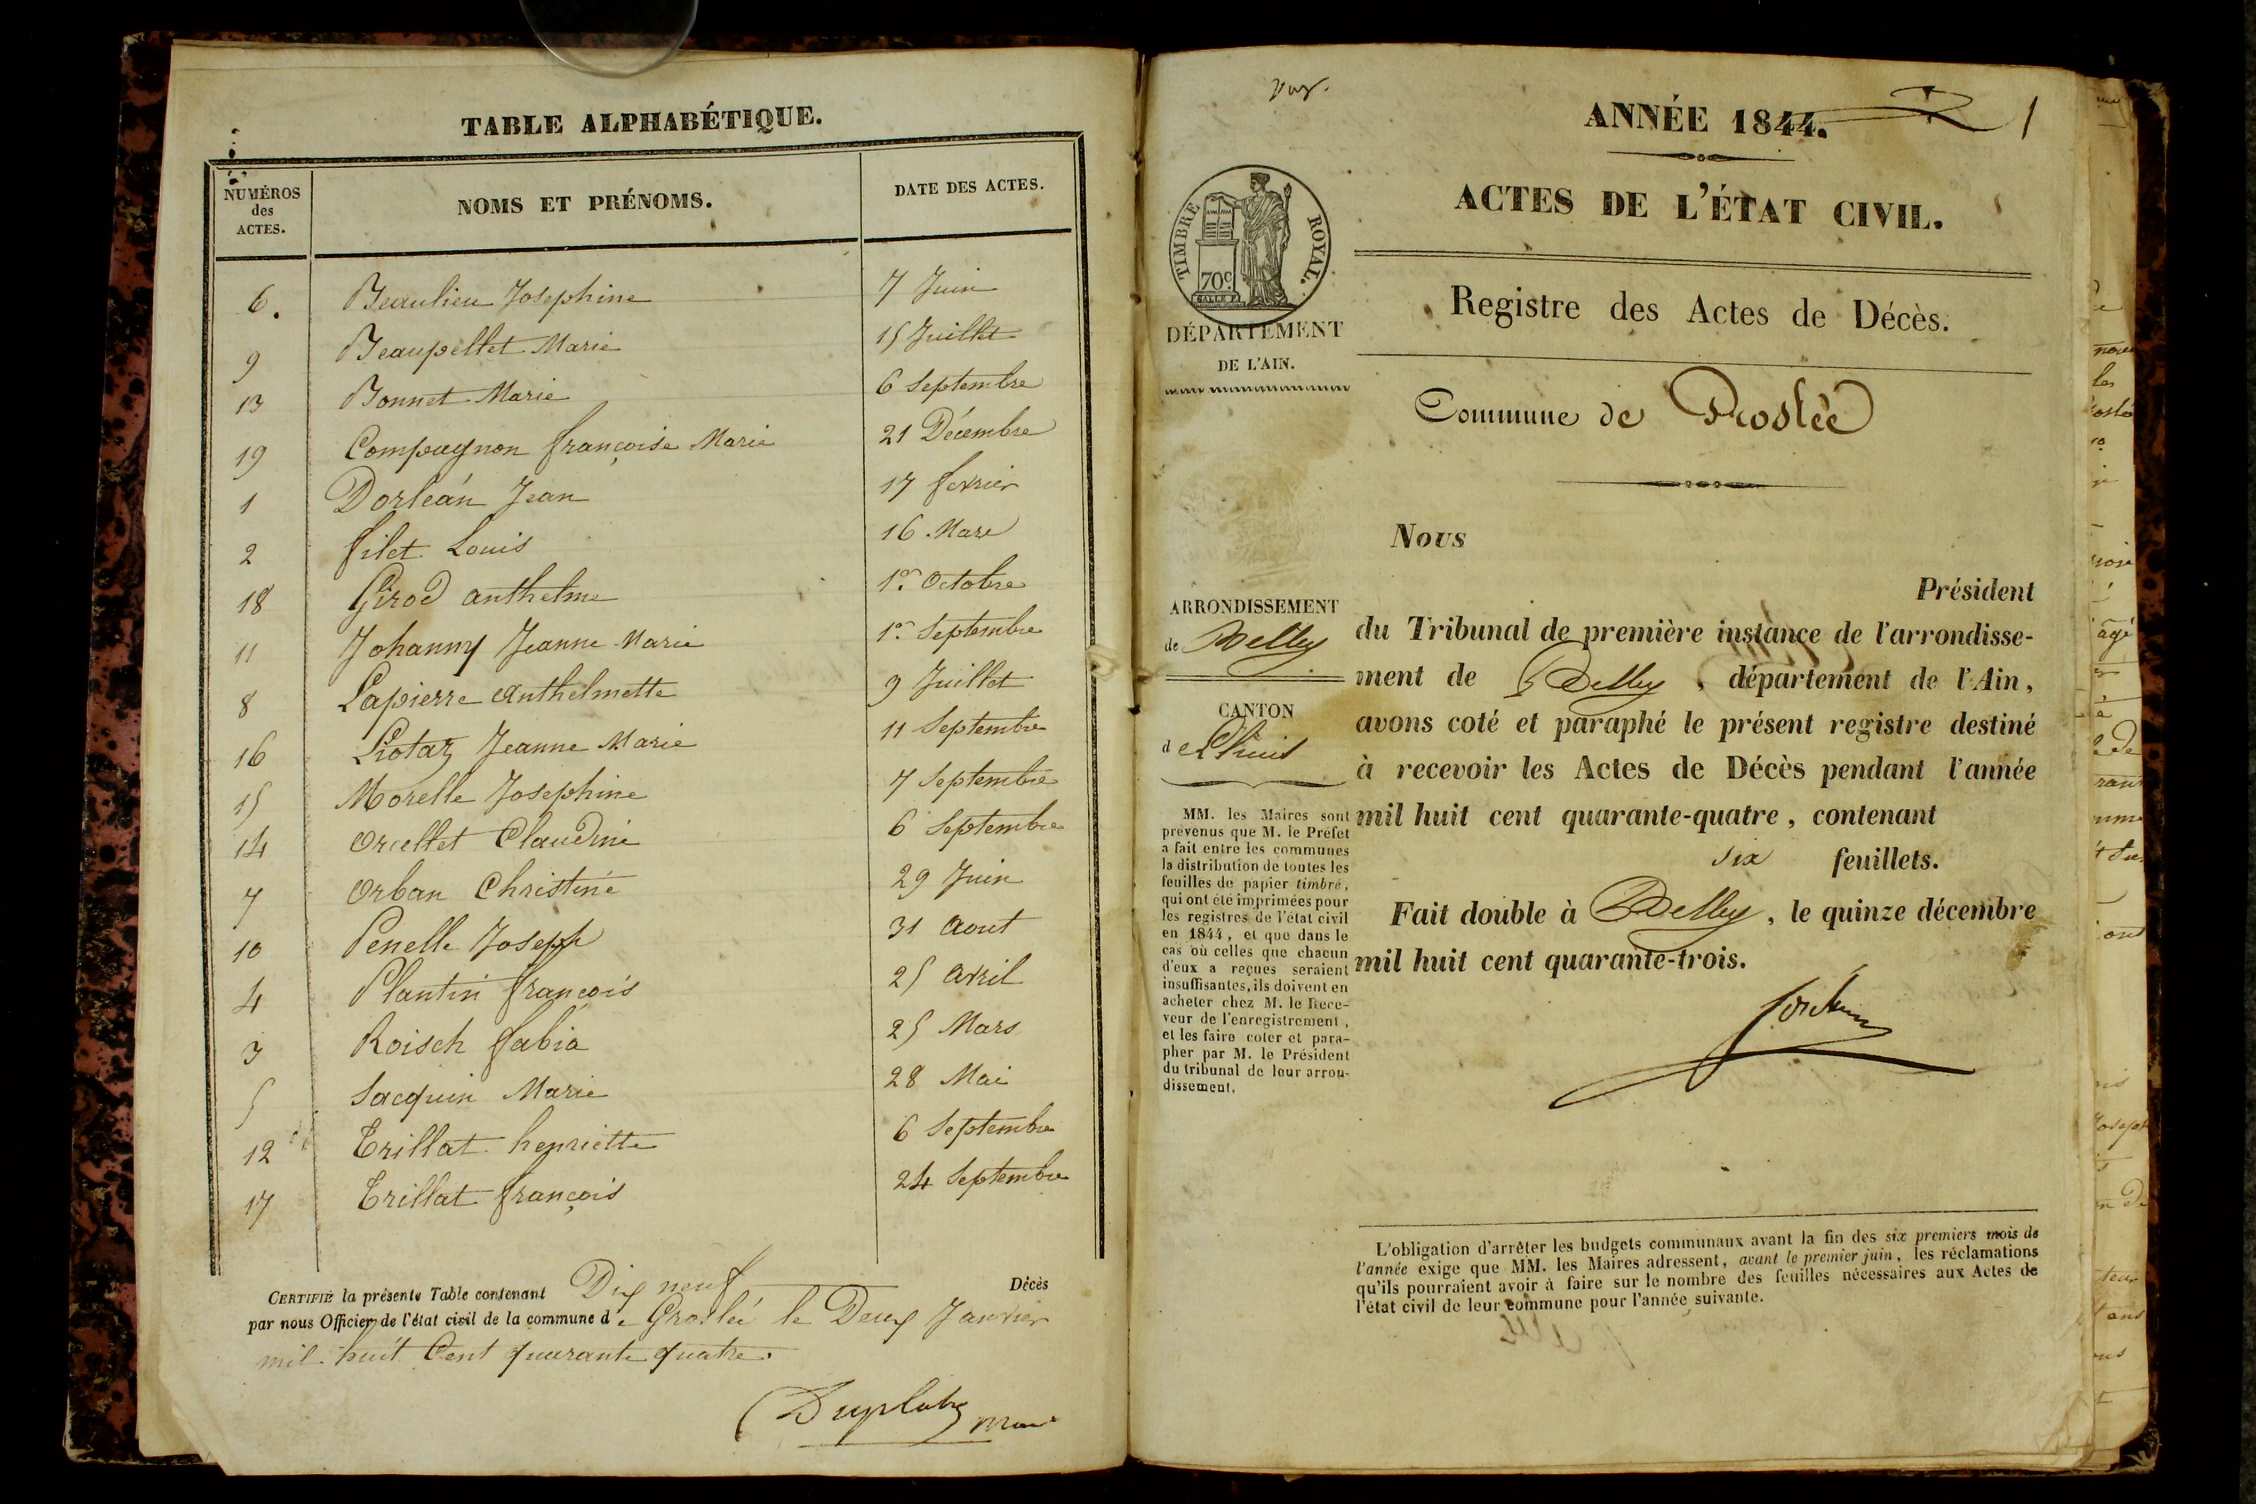 TABLE ALPHABÉTIQUE.
NUMÉROS
des
ACTES.
NOMS ET PRÉNOMS.
DATE DES ACTES.
6. Beaulieu Josephine 7 Juin
9 Beaupellet Marie 15 Juillet
13 Bonnet Marie 6 Septembre
19 Compagnon françoise Marie 21 Décembre
1 Dorléan Jean 17 fevrier
2 filet Louis 16 Mars
18 Girod anthelme 1er Octobre
11 Johanny Jeanne Marie 1er Septembre
8 Lapierre Anthelmette 9 Juillet
16 Liotaz Jeanne Marie 11 Septembre
15 Morelle Josephine 7 Septembre
14 Orcellet Claudine 6 Septembre
7 Orban Christine 29 Juin
10 Penelle Joseph 31 aout
4 Plantin françois 25 avril
3 Roisch fabia 25 Mars
5 Sacquin Marie 28 Mai
12 Trillat henriette 6 Septembre
17 Trillat françois 24 Septembre
CERTIFIÉ la présente Table contenant Dix neuf Décès
par nous Officier de l'état civil de la commune de Groslée le Deux Janvier
mil huit Cent quarante quatre.
ANNÉE 1844. 1
ACTES DE L'ÉTAT CIVIL.
TIMBRE ROYAL.
70c.
DÉPARTEMENT
DE L'AIN.
Registre des Actes de Décès.
Commune de Groslée
ARRONDISSEMENT
de Belley
CANTON
d
MM. les Maires sont
prévenus que M. le Préfet
a fait entre les communes
la distribution de toutes les
feuilles de papier timbré,
qui ont été imprimées pour
les registres de l'état civil
en 1844, et que dans le
cas où celles que chacun
d'eux a reçues seraient
insuffisantes, ils doivent en
acheter chez M. le Rece-
veur de l'enregistrement,
et les faire coter et para-
pher par M. le Président
du tribunal de leur arron-
dissement.
Nous
Président
du Tribunal de première instance de l'arrondisse-
ment de Belley, département de l'Ain,
avons coté et paraphé le présent registre destiné
à recevoir les Actes de Décès pendant l'année
mil huit cent quarante-quatre, contenant
six feuillets.
Fait double à Belley, le quinze décembre
mil huit cent quarante-trois.
L'obligation d'arrêter les budgets communaux avant la fin des six premiers mois de
l'année exige que MM. les Maires adressent, avant le premier juin, les réclamations
qu'ils pourraient avoir à faire sur le nombre des feuilles nécessaires aux Actes de
l'état civil de leur commune pour l'année suivante.